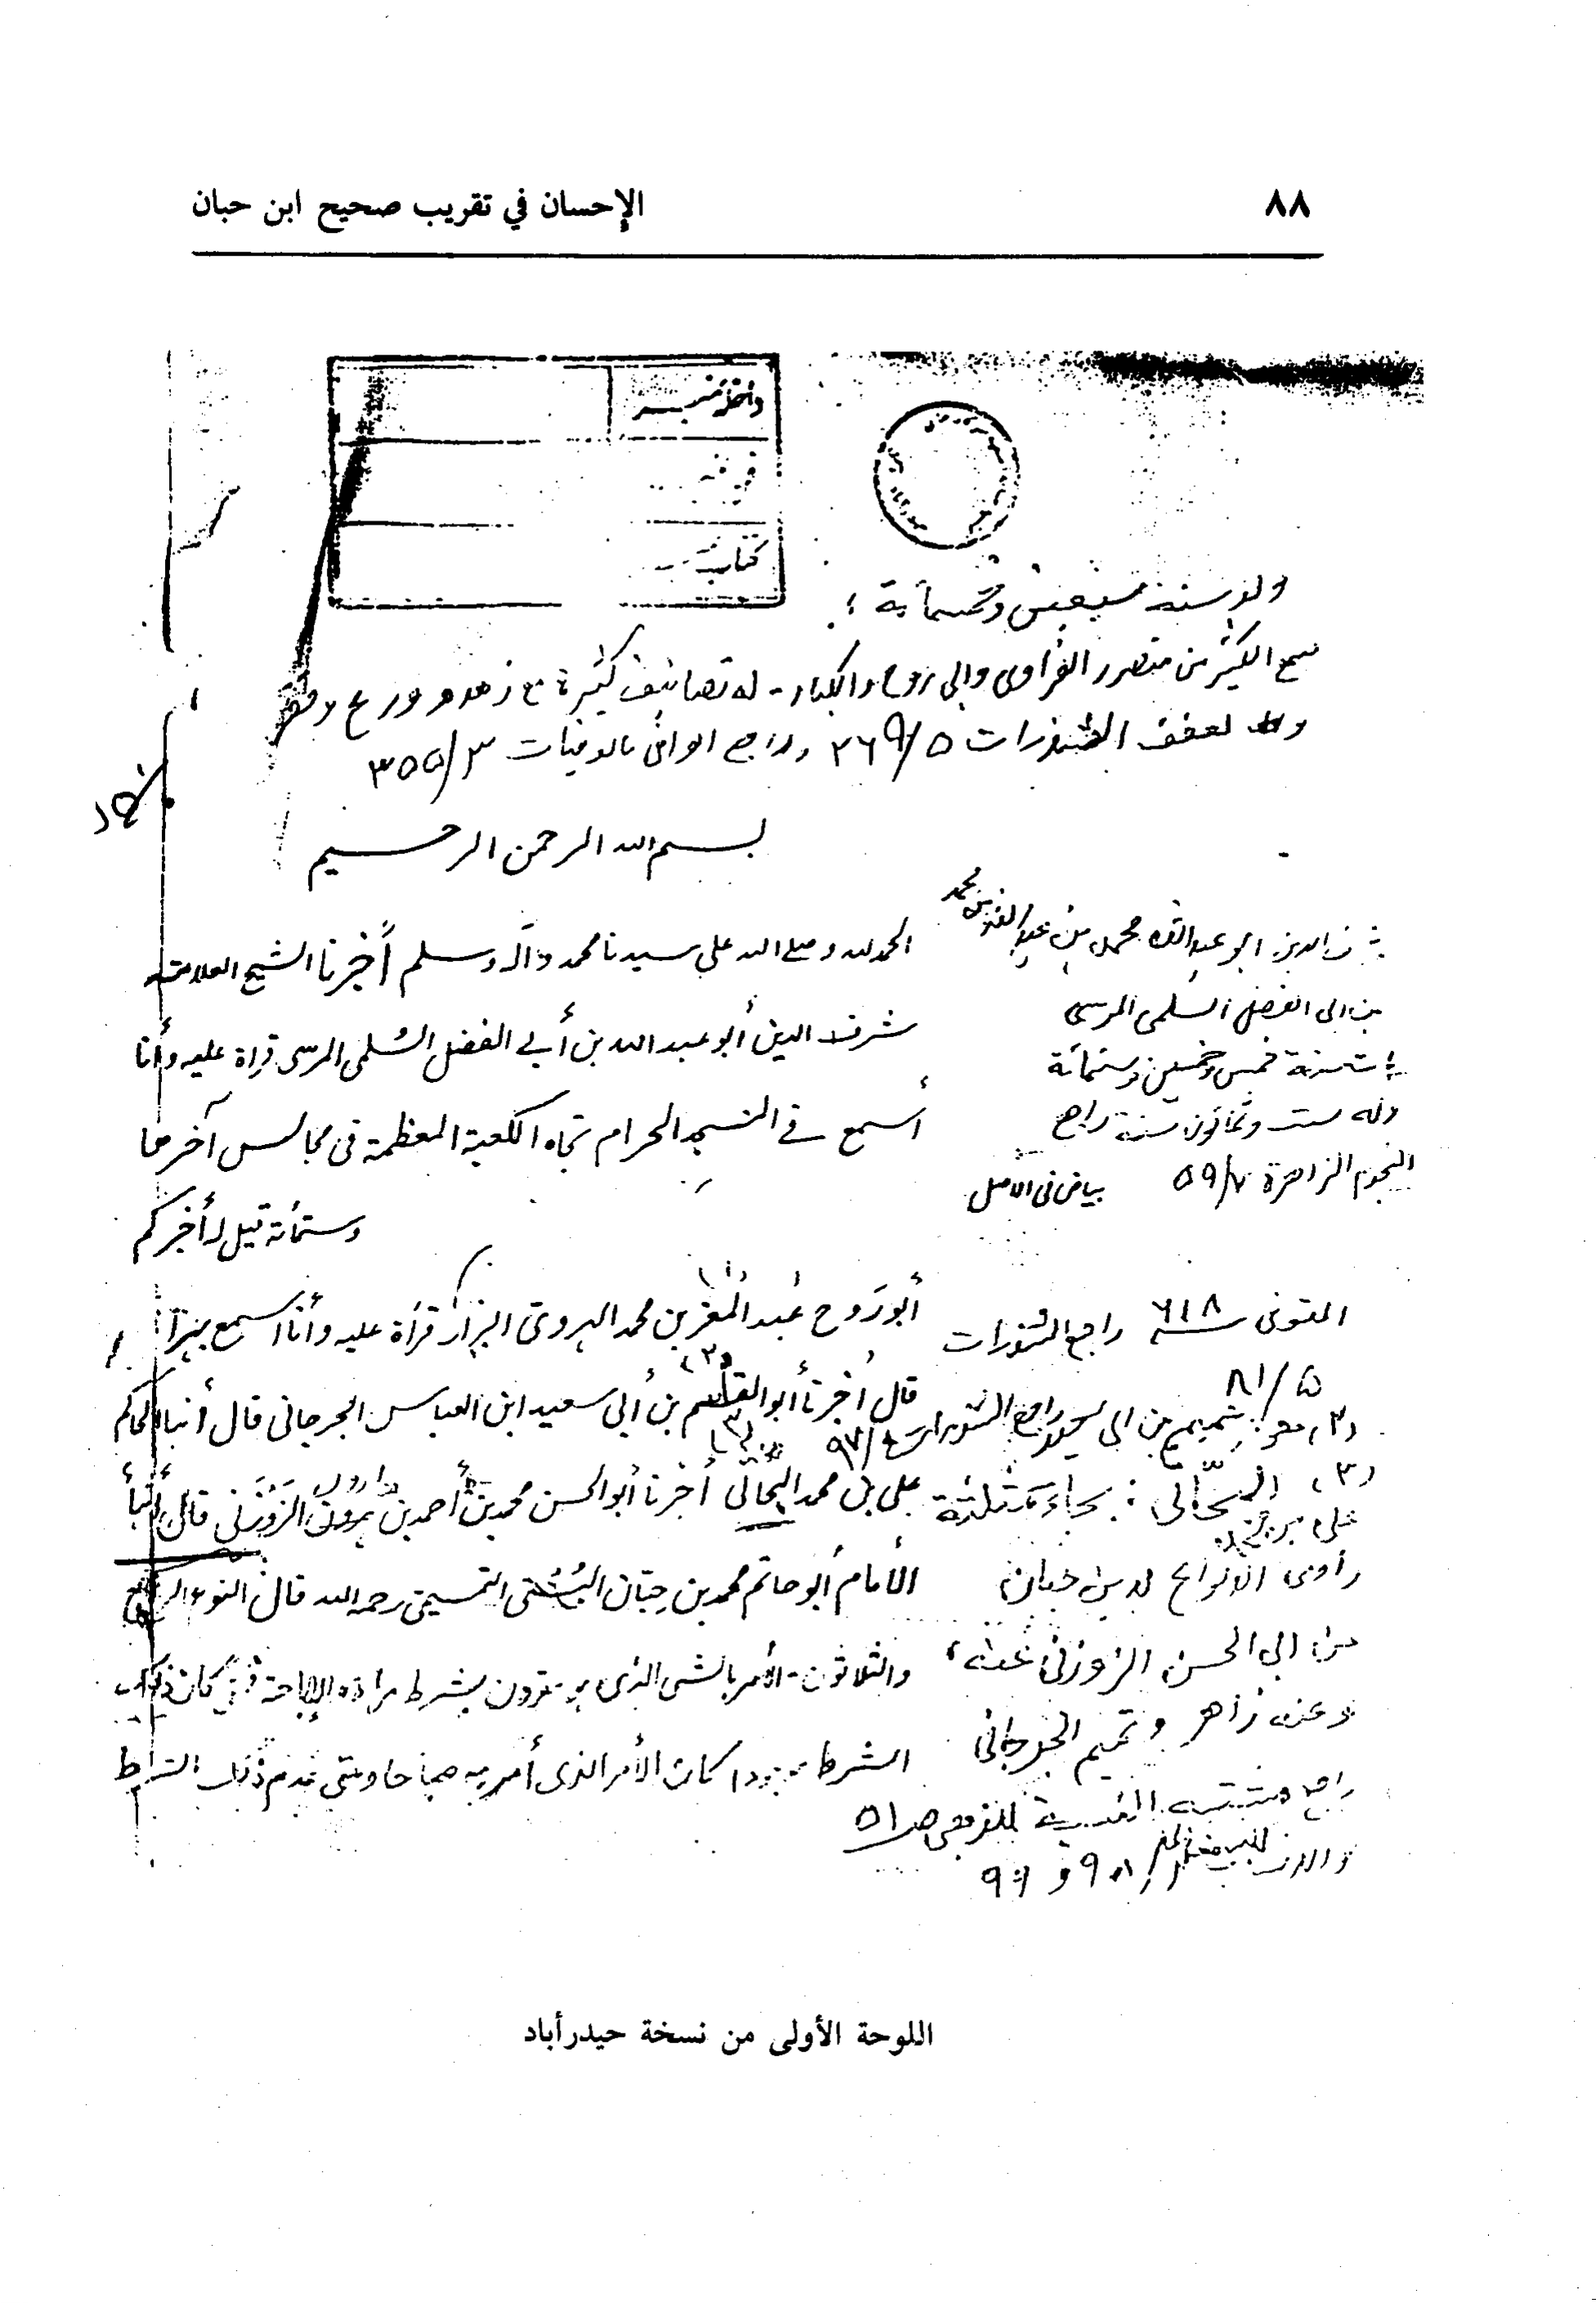 ٨٨
الإحسان في تقريب صحيح ابن حبان
داخله نمبر
كتاب
ولد سنة سبعين وخمسمائة
سمع الكثير من منصور الفراوى وابي روح والكبار - له تصانيف كثيرة مع زهد و ورع وفقر
الشذرات ٢٦٩/٥ وراجع الوافى بالوفيات ٣٥٥/٣
بسم الله الرحمن الرحيم
الحمد لله وصلى الله على سيدنا محمد وآله وسلم أخبرنا الشيخ العلامة
شرف الدين أبو عبد الله بن أبي الفضل السُلمى المرسى قراة عليه وأنا
أسمع في المسجد الحرام تجاه الكعبة المعظمة فى مجالس آخرها
وستمائة قيل له أخبركم
أبورَوح عبد المُعز بن محمد الهروى البزاز قرأة عليه وأنا اسمع بهرا
قال أخبرنا أبو القاسم (٢) بن أبي سعيد ابن العباس الجرجانى قال أنبا الحاكم
على بن محمد البحالى (٣) أخبرنا أبو الحسن محمد بن أحمد بن هارون الزَوزَنى قال أنبأ
الأمام أبو حاتم محمد بن حِبّان البُستى التميمى رحمه الله قال النوع الرابع
والثلاثون - الأمر بالشى الذى مقرون بشرط مراده الإباحة كان ذلك
الشرط موجودا كان الأمر الذى أمر به مباحا ومتى عدم ذلك الشرط
شرف الدين ابو عبد الله محمد بن عبد الله بن محمد
بن ابى الفضل السلمى المرسى
مات سنة خمس وخمسين وستمائة
وله ست وثمانون سنة راجع
النجوم الزاهرة ٥٩/٧
بياض فى الأصل
المتوفى سنة ٦١٨ راجع الشذرات
٨١/٥
(٢) هو تميم بن ابى سعيد راجع الشذرات ٩٧/٤
(٣) البحّاثى : بحاء مثلثة
راوى الانواع لابن حبان
عن ابي الحسن الزوزنى عنه
وعنه زاهر وتميم الجرجانى
راجع مشتبه النسبة للذهبى ص ٥١
اللوحة الأولى من نسخة حيدرأباد